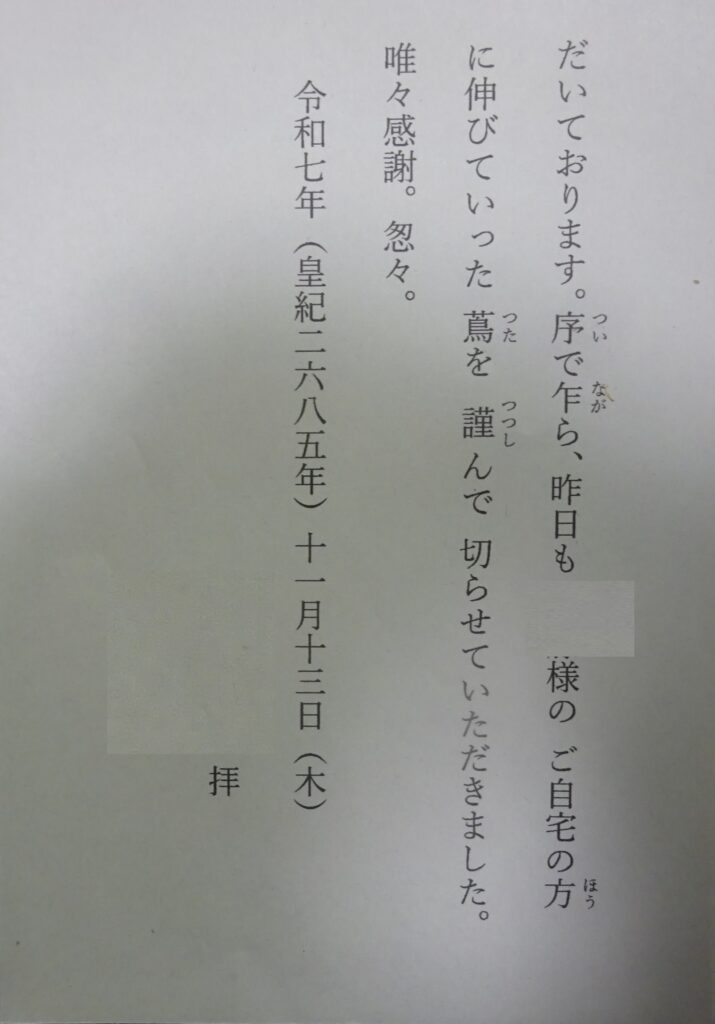 だいております。序で乍ら、昨日も 様の ご自宅の方
に伸びていった 蔦を 謹んで 切らせていただきました。
唯々感謝。怱々。
令和七年（皇紀二六八五年）十一月十三日（木）
拝
つい
なが
ほう
つた
つつし